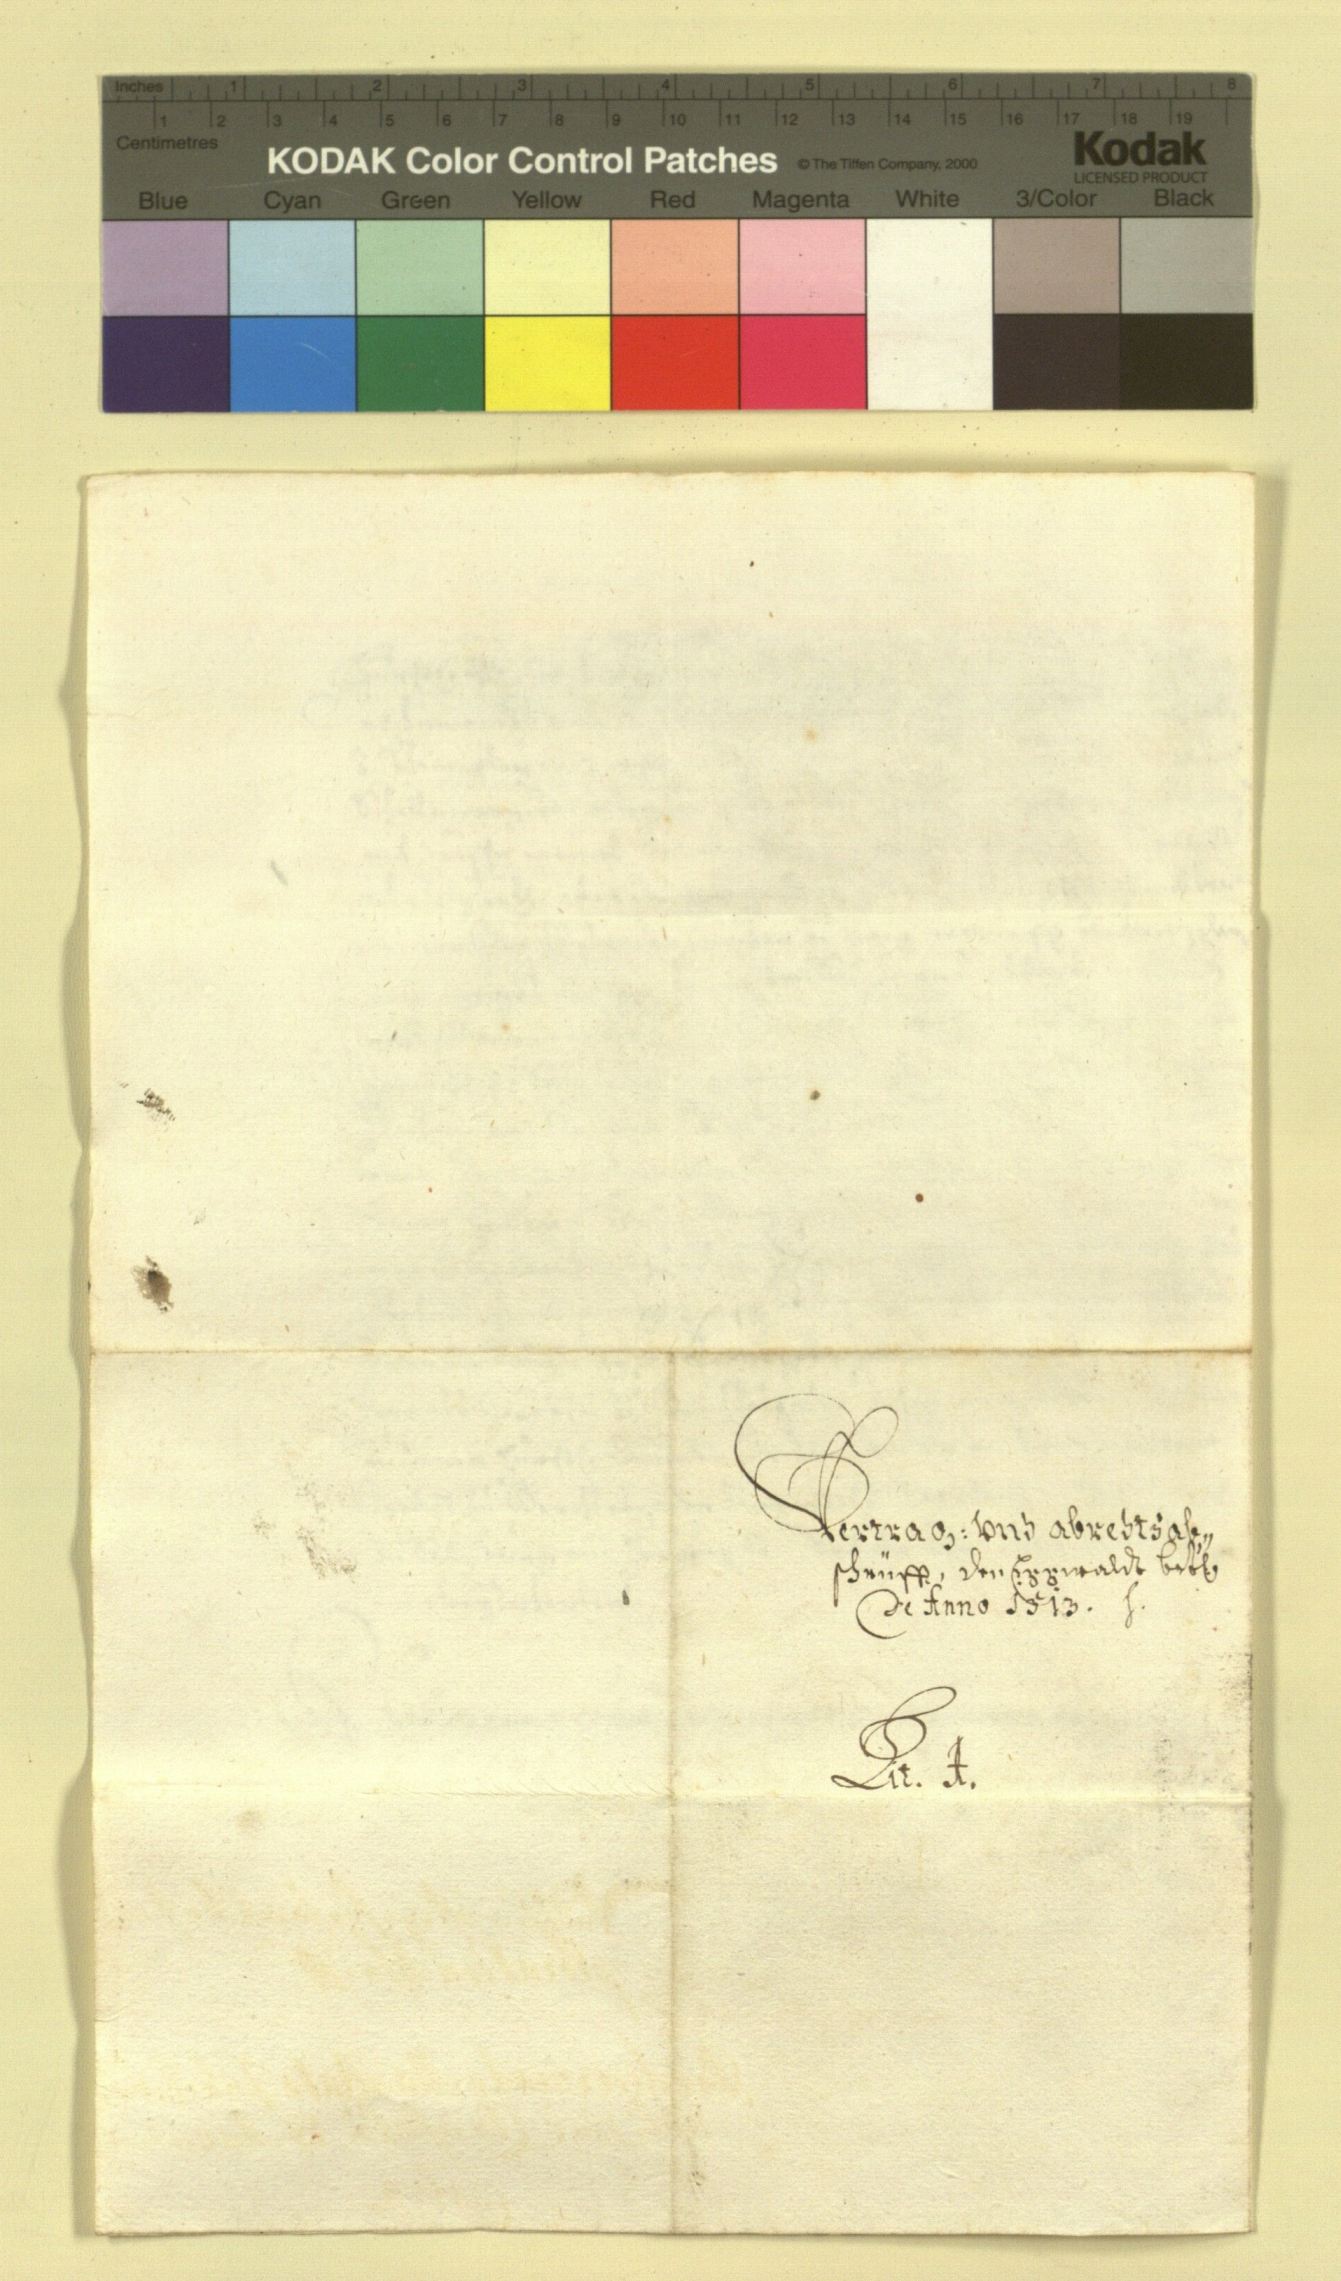 Inches 1 2 3 4 5 6 7 8
1 2 3 4 5 6 7 8 9 10 11 12 13 14 15 16 17 18 19
Centimetres
KODAK Color Control Patches © The Tiffen Company, 2000 Kodak
LICENSED PRODUCT
Blue Cyan Green Yellow Red Magenta White 3/Color Black
Vertrag: vnd abredtsab„
schrüfft, den Eggwaldt betr.
De Anno 1513.
Lit. A.